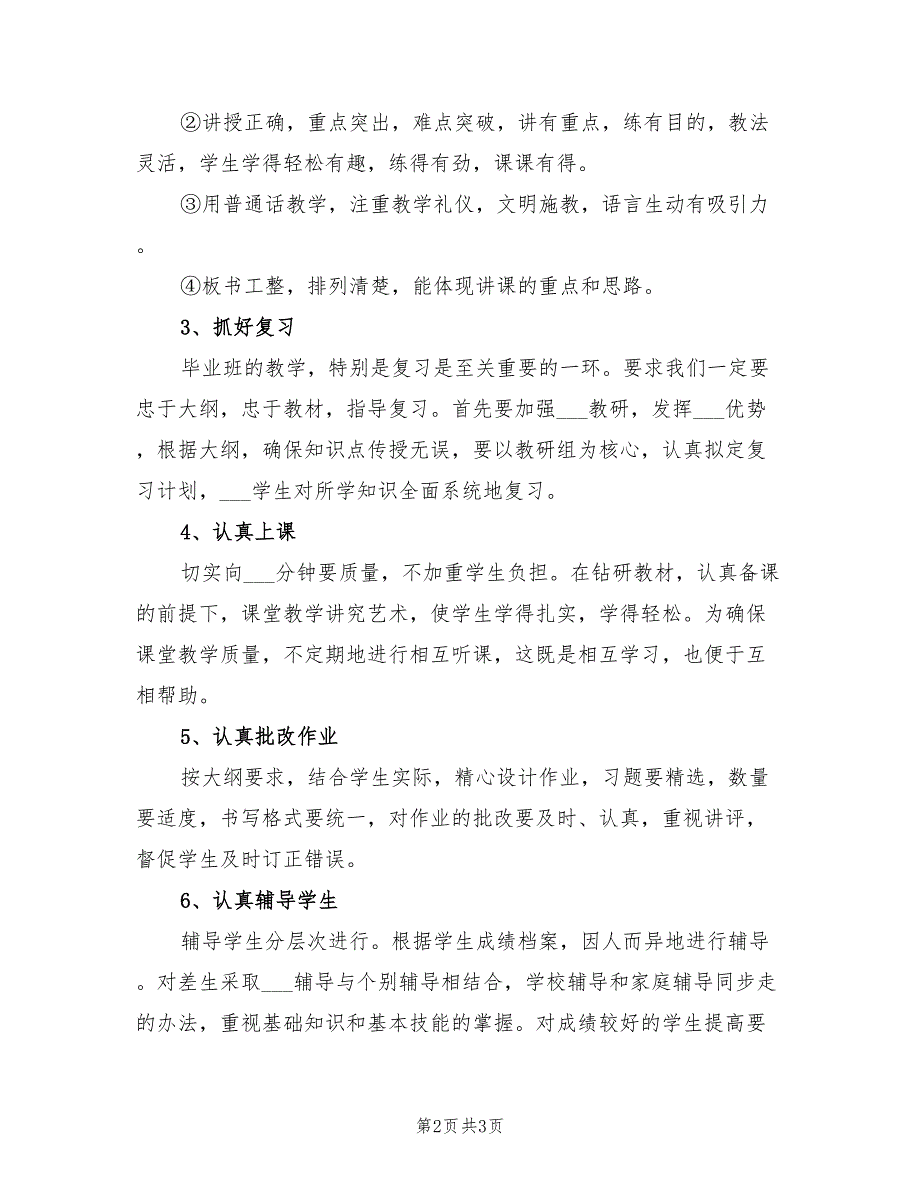 ②讲授正确，重点突出，难点突破，讲有重点，练有目的，教法
灵活，学生学得轻松有趣，练得有劲，课课有得。
③用普通话教学，注重教学礼仪，文明施教，语言生动有吸引力
。
④板书工整，排列清楚，能体现讲课的重点和思路。
3、抓好复习
毕业班的教学，特别是复习是至关重要的一环。要求我们一定要
忠于大纲，忠于教材，指导复习。首先要加强___教研，发挥___优势
，根据大纲，确保知识点传授无误，要以教研组为核心，认真拟定复
习计划，___学生对所学知识全面系统地复习。
4、认真上课
切实向___分钟要质量，不加重学生负担。在钻研教材，认真备课
的前提下，课堂教学讲究艺术，使学生学得扎实，学得轻松。为确保
课堂教学质量，不定期地进行相互听课，这既是相互学习，也便于互
相帮助。
5、认真批改作业
按大纲要求，结合学生实际，精心设计作业，习题要精选，数量
要适度，书写格式要统一，对作业的批改要及时、认真，重视讲评，
督促学生及时订正错误。
6、认真辅导学生
辅导学生分层次进行。根据学生成绩档案，因人而异地进行辅导
。对差生采取___辅导与个别辅导相结合，学校辅导和家庭辅导同步走
的办法，重视基础知识和基本技能的掌握。对成绩较好的学生提高要
第2页 共3页